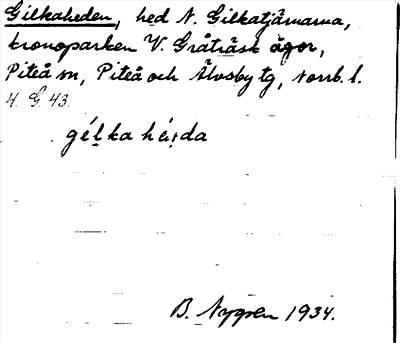 Gilkaheden, hed N. Gilkatjärnarna,
kronoparken V. Gråträsk ägor,
Piteå sn, Piteå och Älvsby tg, Norrb. l.
4. G. 43.
gélka héi̯da
B. Nygren 1934.